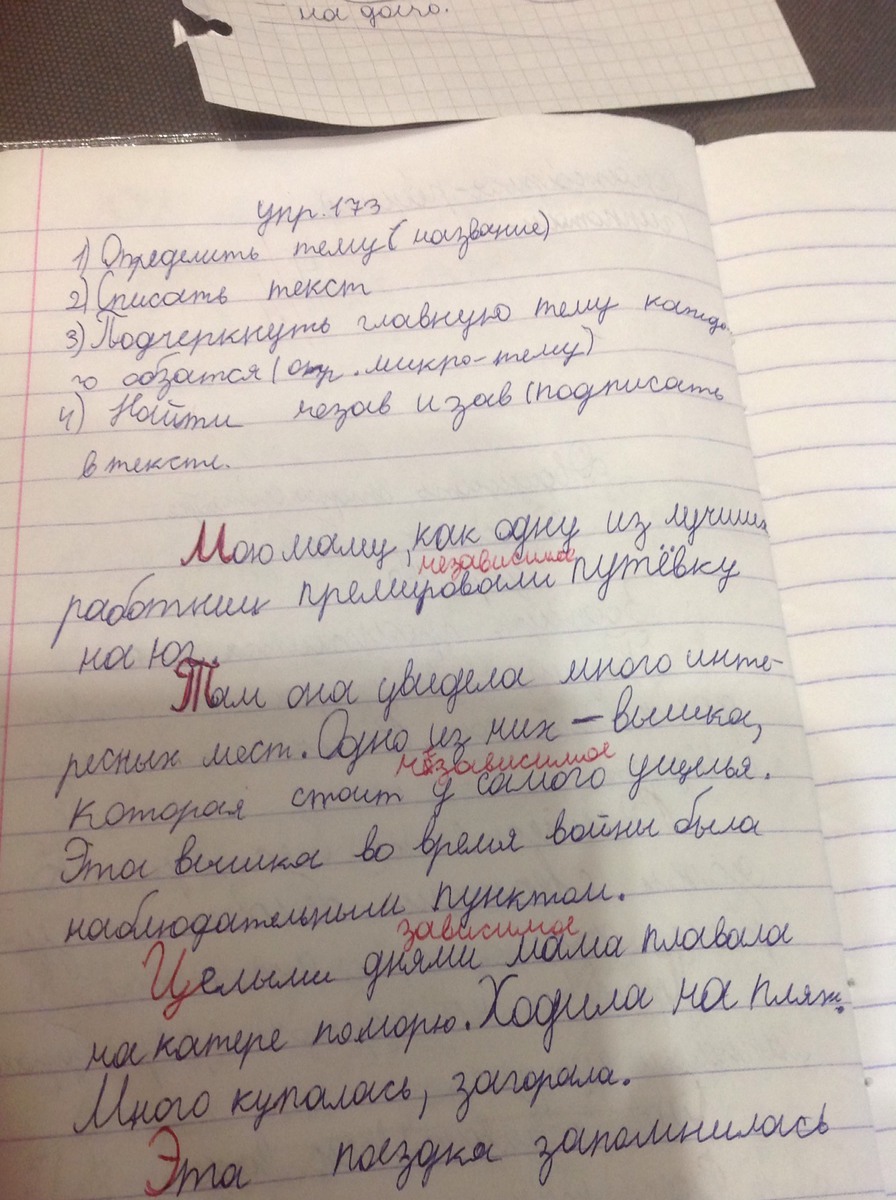 на долго.
упр. 173
1) Определить тему (название)
2) Списать текст
3) Подчеркнуть главную тему каждо-
го обзатся (опр. микро-тему)
4) Найти незав и зав (подписать
в тексте.
Мою маму, как одну из лучших
независимое
работниц премировали путёвку
на юг.
Там она увидела много инте-
ресных мест. Одно из них - вышка,
независимое
которая стоит у самого ущелья.
Эта вышка во время войны была
наблюдательным пунктом.
зависимое
Целыми днями мама плавала
на катере поморю. Ходила на пляж.
Много купалась, загорала.
Эта поездка запомнилась